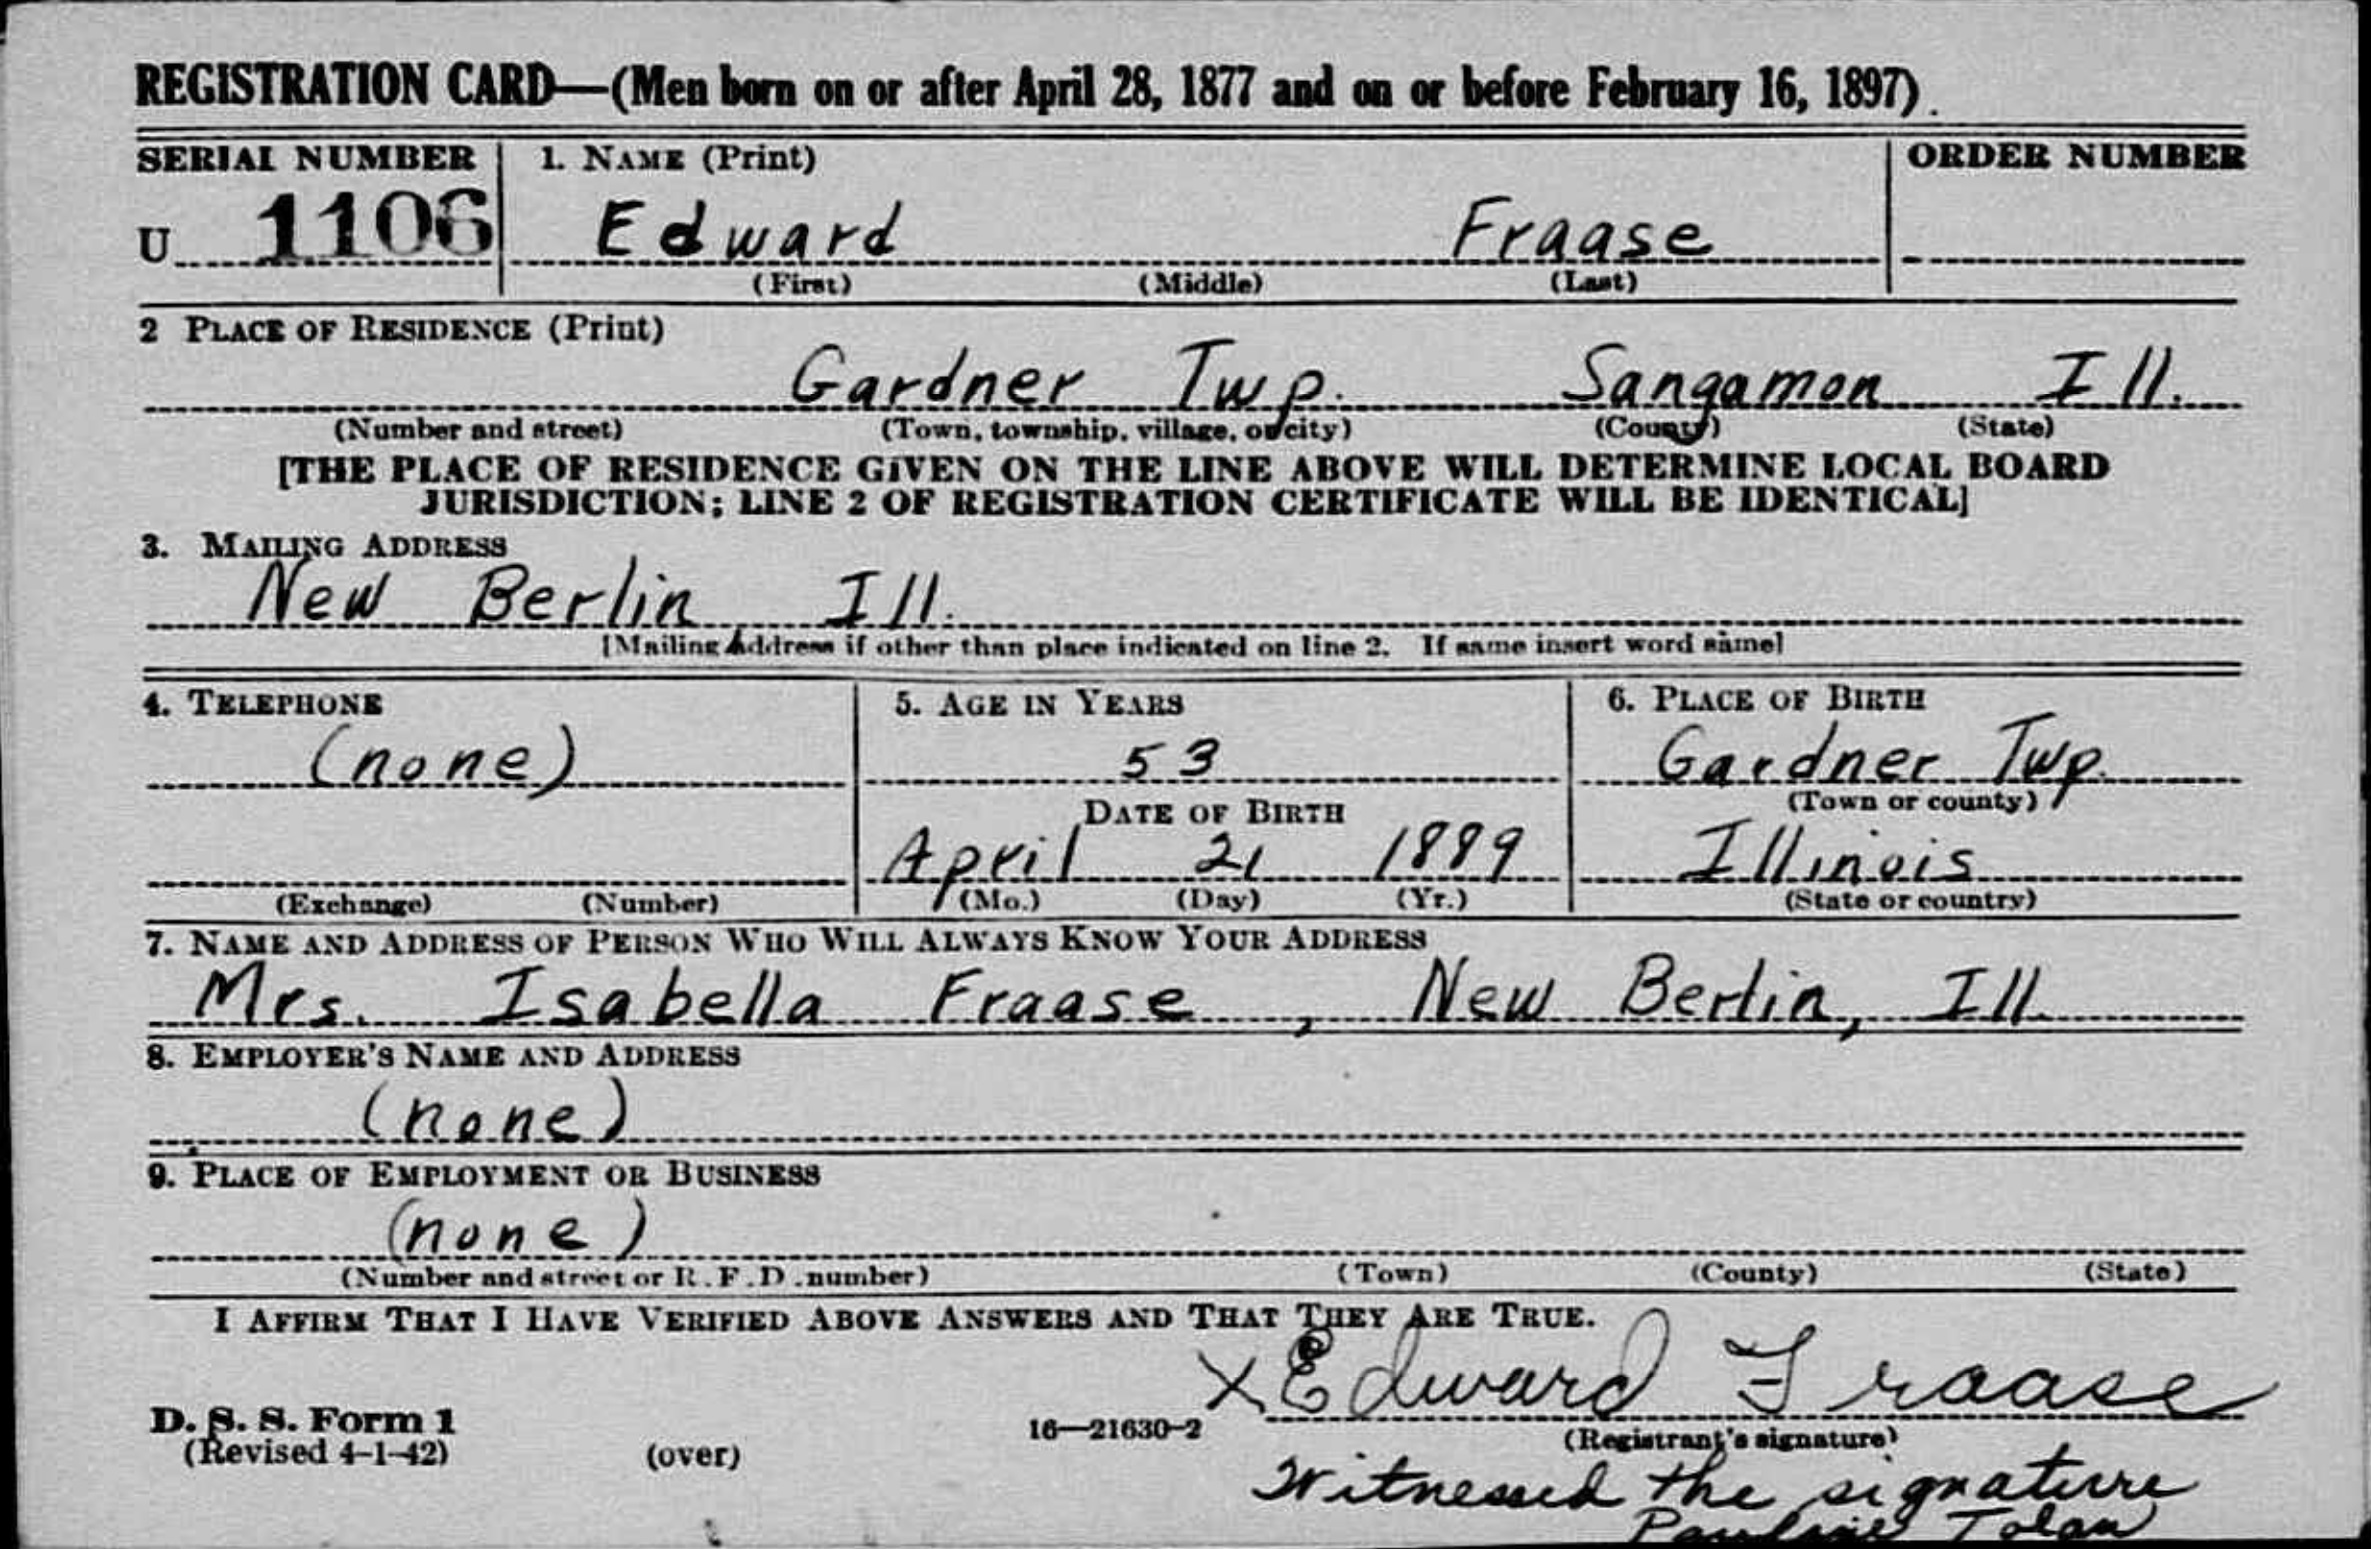 REGISTRATION CARD—(Men born on or after April 28, 1877 and on or before February 16, 1897).
SERIAL NUMBER 1. NAME (Print) ORDER NUMBER
U 1106 Edward Fraase
(First) (Middle) (Last)
2 PLACE OF RESIDENCE (Print)
Gardner Twp. Sangamon Ill.
(Number and street) (Town, township, village, or city) (County) (State)
[THE PLACE OF RESIDENCE GIVEN ON THE LINE ABOVE WILL DETERMINE LOCAL BOARD
JURISDICTION; LINE 2 OF REGISTRATION CERTIFICATE WILL BE IDENTICAL]
3. MAILING ADDRESS
New Berlin, Ill.
[Mailing Address if other than place indicated on line 2. If same insert word same]
4. TELEPHONE 5. AGE IN YEARS 6. PLACE OF BIRTH
(none) 53 Gardner Twp.
DATE OF BIRTH (Town or county)
April 21 1889 Illinois
(Exchange) (Number) (Mo.) (Day) (Yr.) (State or country)
7. NAME AND ADDRESS OF PERSON WHO WILL ALWAYS KNOW YOUR ADDRESS
Mrs. Isabella Fraase, New Berlin, Ill.
8. EMPLOYER'S NAME AND ADDRESS
(none)
9. PLACE OF EMPLOYMENT OR BUSINESS
(none)
(Number and street or R.F.D. number) (Town) (County) (State)
I AFFIRM THAT I HAVE VERIFIED ABOVE ANSWERS AND THAT THEY ARE TRUE.
X Edward Fraase
D. S. S. Form 1 16—21630-2 (Registrant's signature)
(Revised 4-1-42) (over)
Witnessed the signature
Pauline Tolan